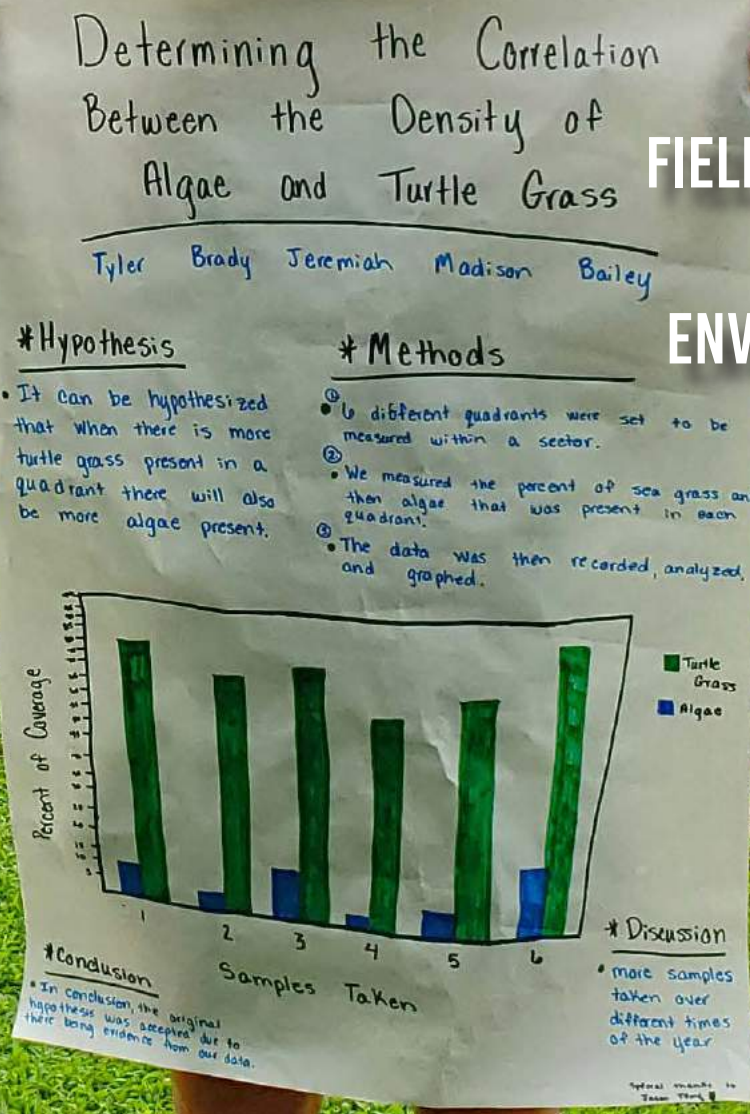 Determining the Correlation
Between the Density of
Algae and Turtle Grass
FIEL
Tyler Brady Jeremiah Madison Bailey
ENV
*Hypothesis
• It can be hypothesized
that when there is more
turtle grass present in a
quadrant there will also
be more algae present.
* Methods
①
• 6 different quadrants were set to be
measured within a sector.
②
• We measured the percent of sea grass an
then algae that was present in each
quadrant.
③
• The data was then recorded, analyzed,
and graphed.
Percent of Coverage
Turtle
Grass
Algae
1 2 3 4 5 6
Samples Taken
*Conclusion
• In conclusion, the original
hypothesis was accepted due to
there being evidence from our data.
* Discussion
• more samples
taken over
different times
of the year
Special thanks to